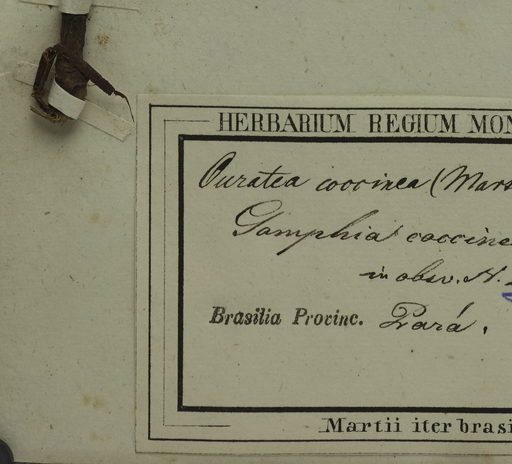 HERBARIUM REGIUM MON
Ouratea coccinea (Mars
Gomphia coccine
in obsv. N.
Brasilia Provinc. Pará.
Martii iter brasi